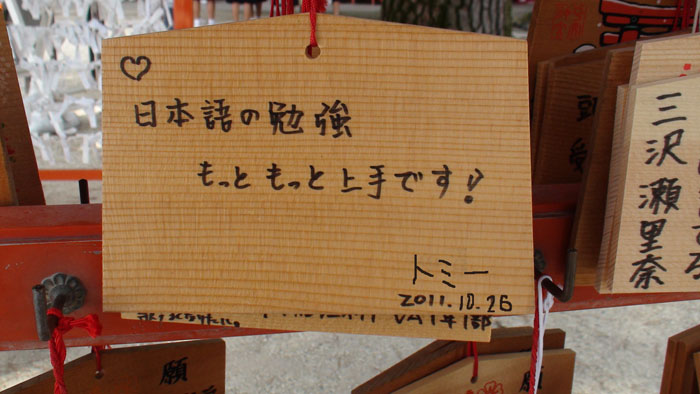 日本語の勉強
もっともっと上手です!
トミー
2011.10.26
三沢瀬里奈
願
願